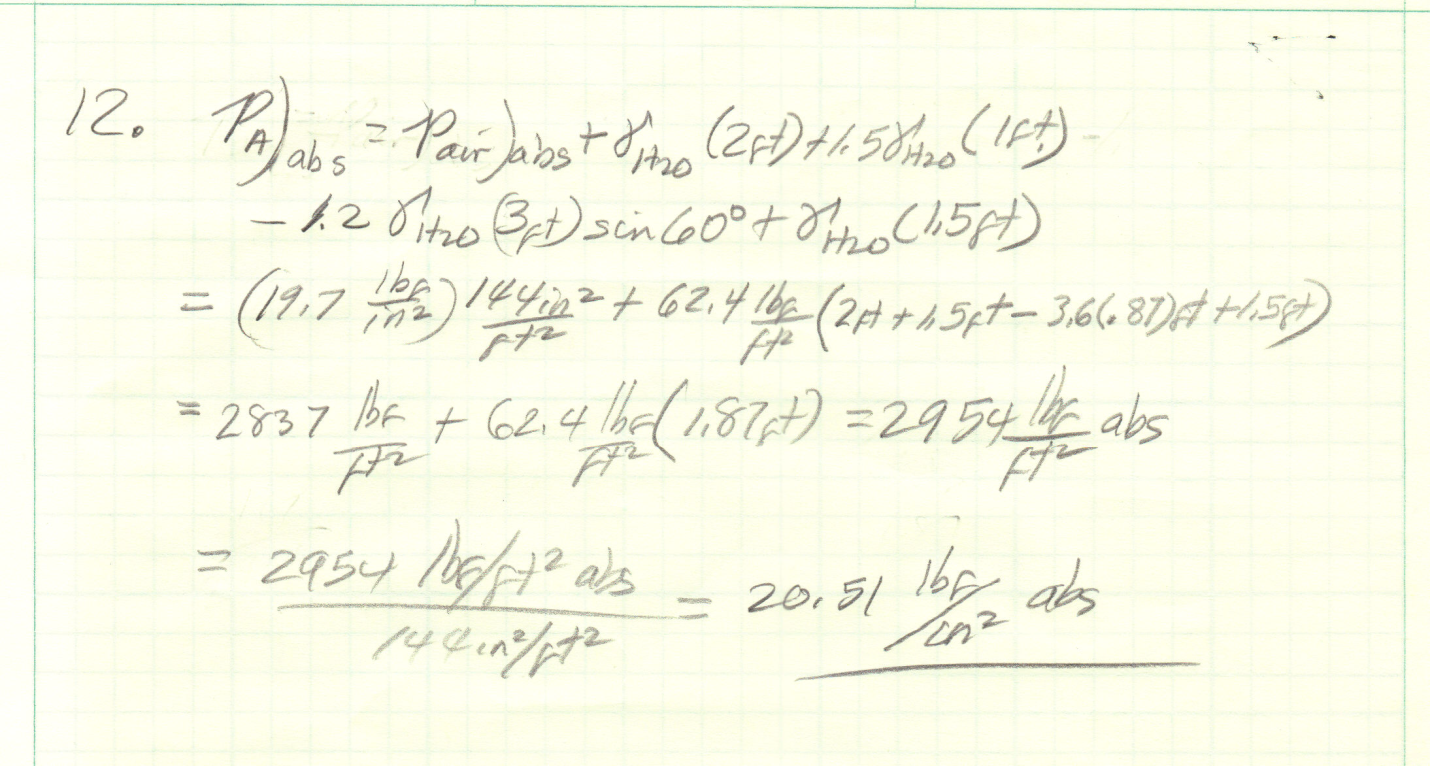 12. P_A)abs = Pair)abs + γH2O (2ft) + 1.5γH2O (1ft)
- 1.2 γH2O (3ft) sin60° + γH2O (1.5ft)
= (19.7 lbf/in²) 144in²/ft² + 62.4 lbf/ft² (2ft + 1.5ft - 3.6(.87)ft + 1.5ft)
= 2837 lbf/ft² + 62.4 lbf/ft² (1.87ft) = 2954 lbf/ft² abs
= 2954 lbf/ft² abs / 144in²/ft² = 20.51 lbf/in² abs